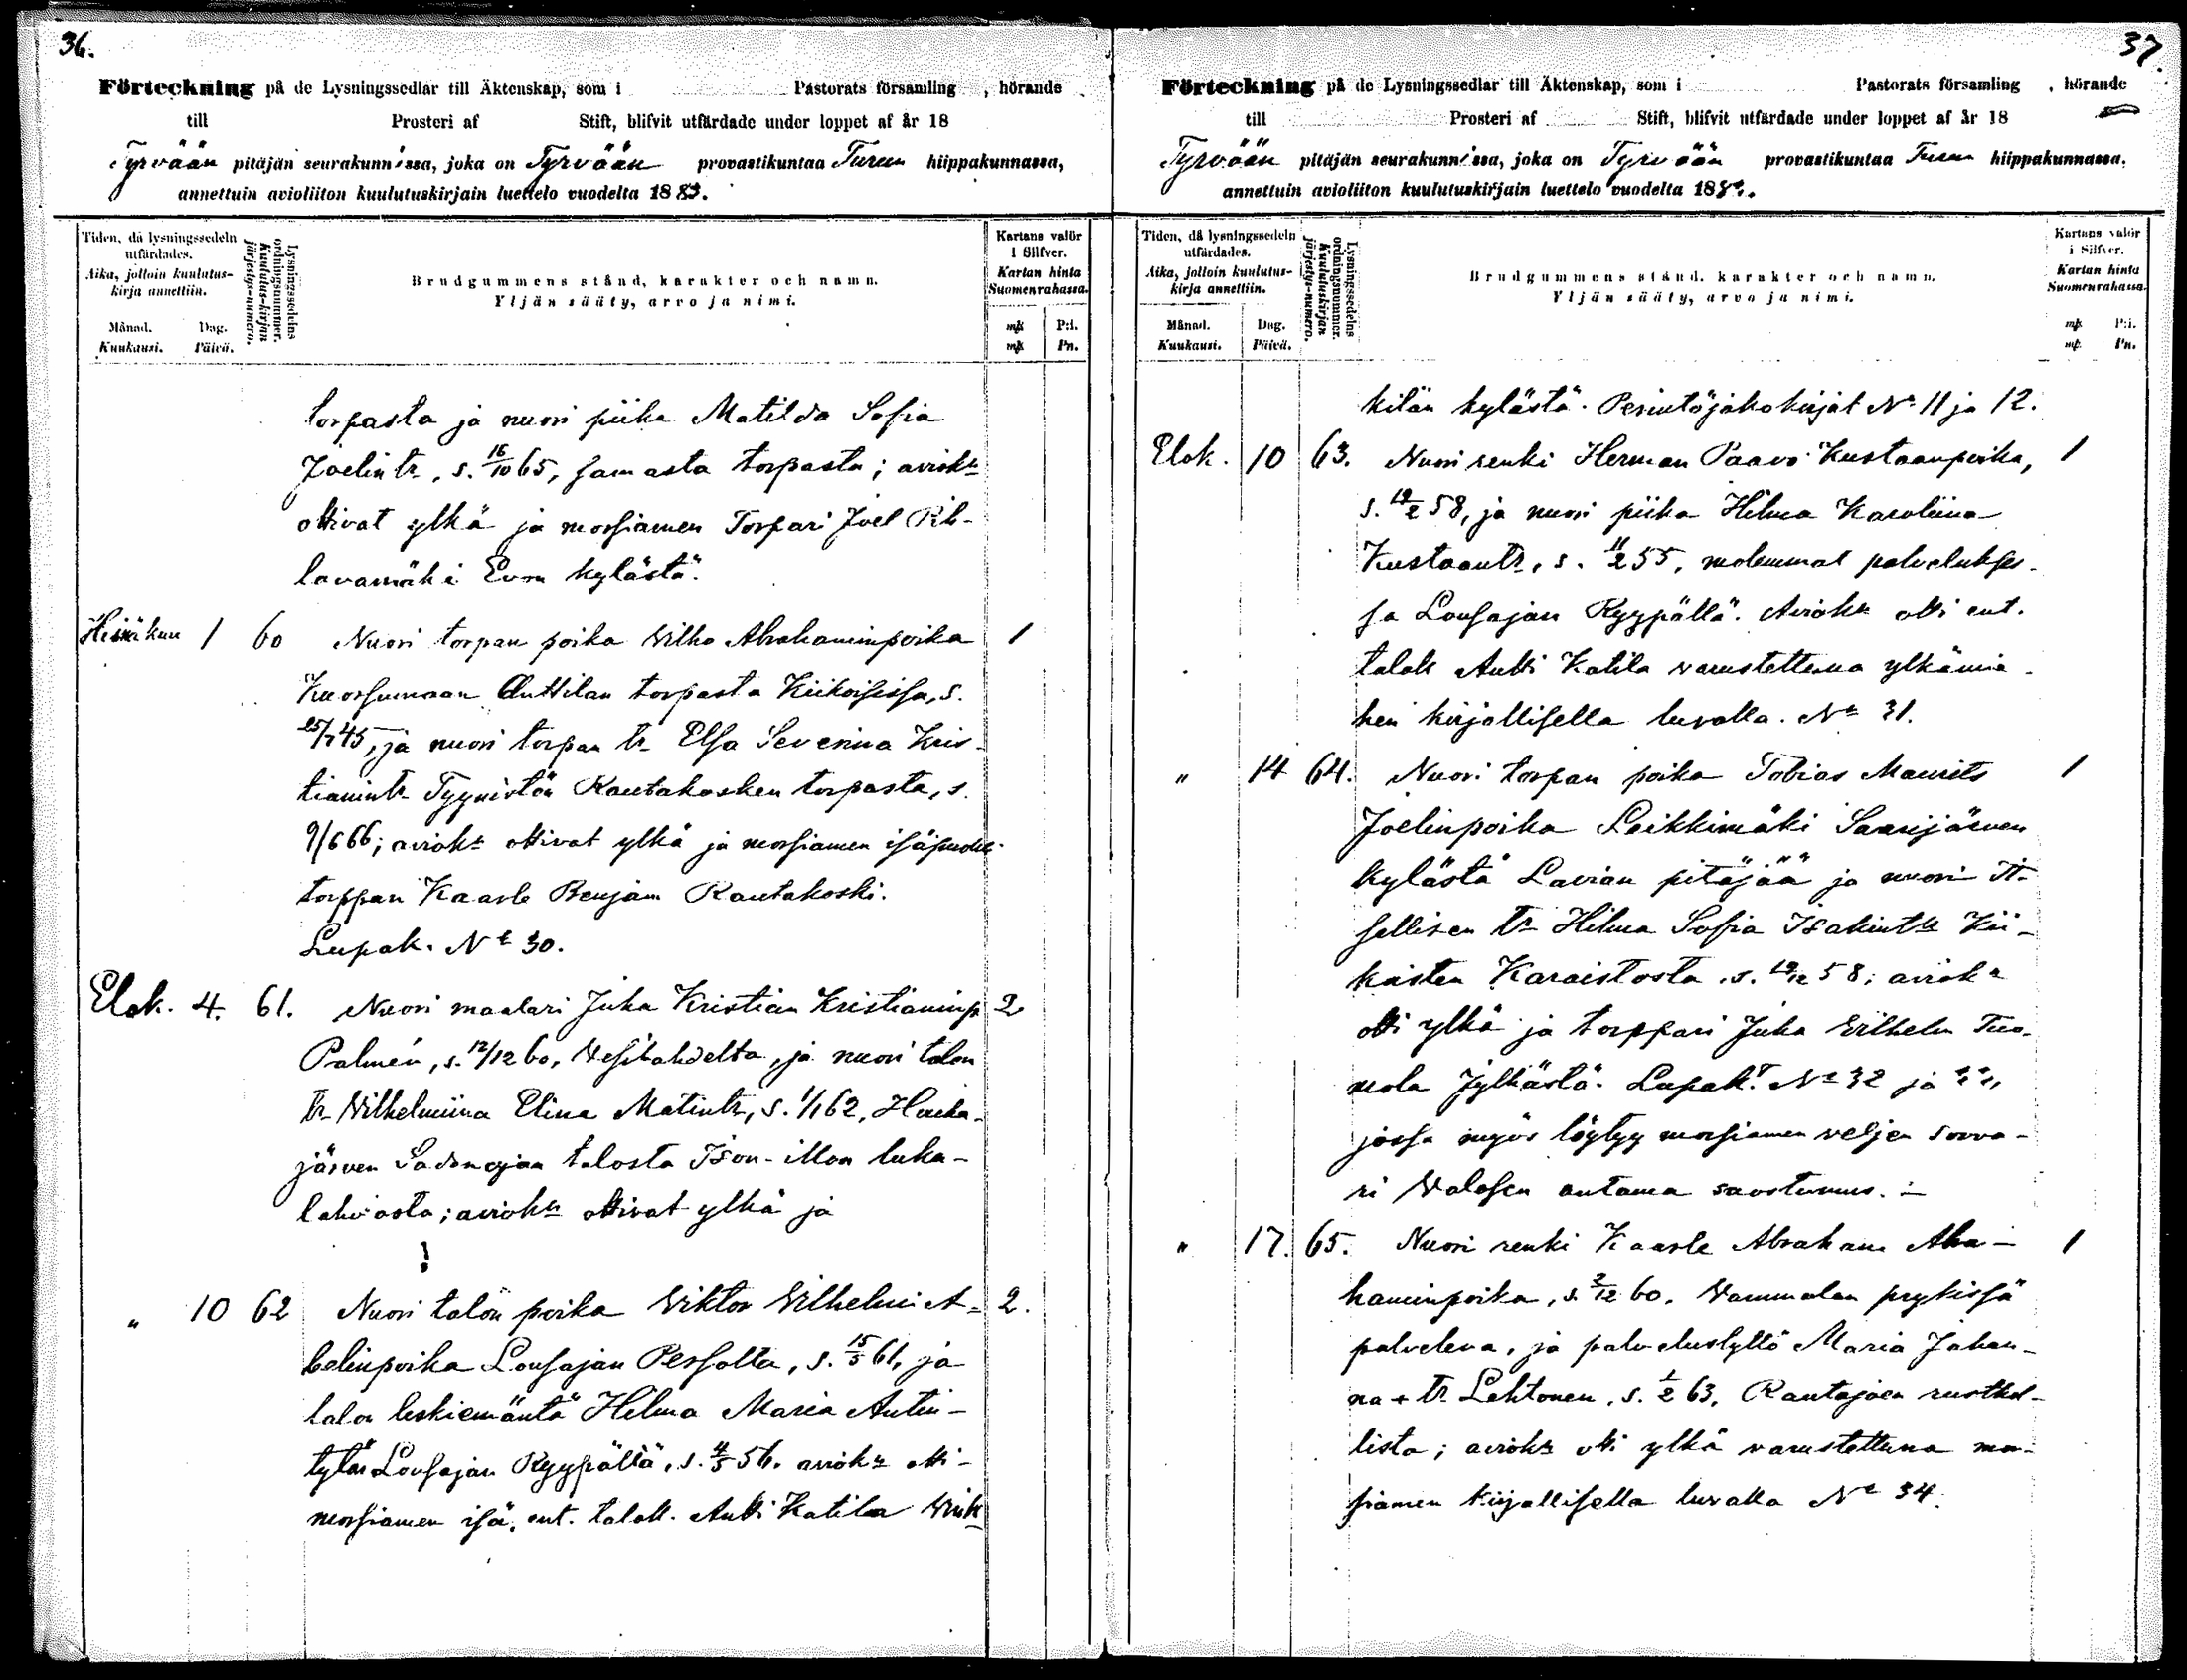 36.
Förteckning på de Lysningssedlar till Äktenskap, som i Pastorats församling , hörande
till Prosteri af Stift, blifvit utfärdade under loppet af år 18
Tyrvään pitäjän seurakunnissa, joka on Tyrvään provastikuntaa Turun hiippakunnassa,
annettuin avioliiton kuulutuskirjain luettelo vuodelta 1883.
Tiden, då lysningssedeln utfärdades.
Aika, jolloin kuulutus-kirja annettiin.
Månad. Dag.
Kuukausi. Päivä.
Lysningssedelns ordningsnummer.
Kuulutus-kirjan järjestys-numero.
Brudgummens stånd, karakter och namn.
Yljän sääty, arvo ja nimi.
Kartans valör i Silfver.
Kartan hinta Suomenrahassa.
mk P:i.
mk Pn.
torpasta ja nuori piika Matilda Sofia
Joelintr, s. 16/10 65, samasta torpasta; aviok:n
ottivat ylkä ja morsiamen Torpari Joel
kylästä.
Heinäkuu 1 60 Nuori torpan poika Vilho Abrahaminpoika 1
Kuorsumaan Anttilan torpasta Kiikoisissa, s.
25/7 45, ja nuori torpan tr Elsa Severina Kris-
tianintr Tyynistön Rautakosken torpasta, s.
9/6 66; aviok:n ottivat ylkä ja morsiamen isäpuoli
torppari Kaarle Benjam Rautakoski.
Lupak. No 30.
Elok. 4. 61. Nuori maalari Juha Kristian Kristianinp. 2
Palmén, s. 12/12 60, Vesilahdelta, ja nuori talon
tr Vilhelmiina Elina Matintr, s. 1/1 62, Houha-
järven Sadonojan talosta Ison-illon luka-
lahdosta; aviok:n ottivat ylkä ja
!
" 10 62 Nuori talon poika Viktor Vilhelmi A- 2.
belinpoika Lousajan Persolta, s. 15/5 61, ja
talon leskiemäntä Hilma Maria Antin-
tytär Lousajan Ryypältä, s. 4/5 56. aviok:n otti
morsiamen isä, ent. talok. Antti Katila
37.
Förteckning på de Lysningssedlar till Äktenskap, som i Pastorats församling , hörande
till Prosteri af Stift, blifvit utfärdade under loppet af år 18
Tyrvään pitäjän seurakunnissa, joka on Tyrvään provastikuntaa Turun hiippakunnassa.
annettuin avioliiton kuulutuskirjain luettelo vuodelta 188
Tiden, då lysningssedeln utfärdades.
Aika, jolloin kuulutus-kirja annettiin.
Månad. Dag.
Kuukausi. Päivä.
Lysningssedelns ordningsnummer.
Kuulutuskirjan järjestys-numero.
Brudgummens stånd, karakter och namn.
Yljän sääty, arvo ja nimi.
Kartans valör i Silfver.
Kartan hinta Suomenrahassa.
mk P:i.
mk Pn.
kilän kylästä. Perintöjakokirjat No 11 ja 12.
Elok. 10 63. Nuori renki Herman Paavo Kustaanpoika, 1
s. 19/2 58, ja nuori piika Hilma Karoliina
Kustaantr, s. 11/2 55, molemmat palvelukses-
sa Lousajan Ryypällä. Aviok:n otti ent.
talok Antti Katila varustettuna ylkämie-
hen kirjallisella luvalla. No 31.
" 14 64. Nuori torpan poika Tobias Maurits 1
Joelinpoika Leikkimäki Saarijärven
kylästä Lavian pitäjää ja nuori it-
sellisen tr Hilma Sofia Isakintr Kii-
koisten Karaistosta, s. 19/12 58; aviok:n
otti ylkä ja torppari Juha Vilhelm Tuo-
mola Jylhästä. Lupak. No 32 ja 33,
jossa myös löytyy morsiamen veljen sorva-
ri Valosen antama suostumus.
" 17. 65. Nuori renki Kaarle Abraham Abra- 1
haminpoika, s. 3/12 60. Vammalan prykissä
palveleva, ja palvelustyttö Maria Johan-
na + tr Lehtonen, s. 1/2 63, Rautajoen rusthol-
lista; aviok:n otti ylkä varustettuna mor-
siamen kirjallisella luvalla No 34.